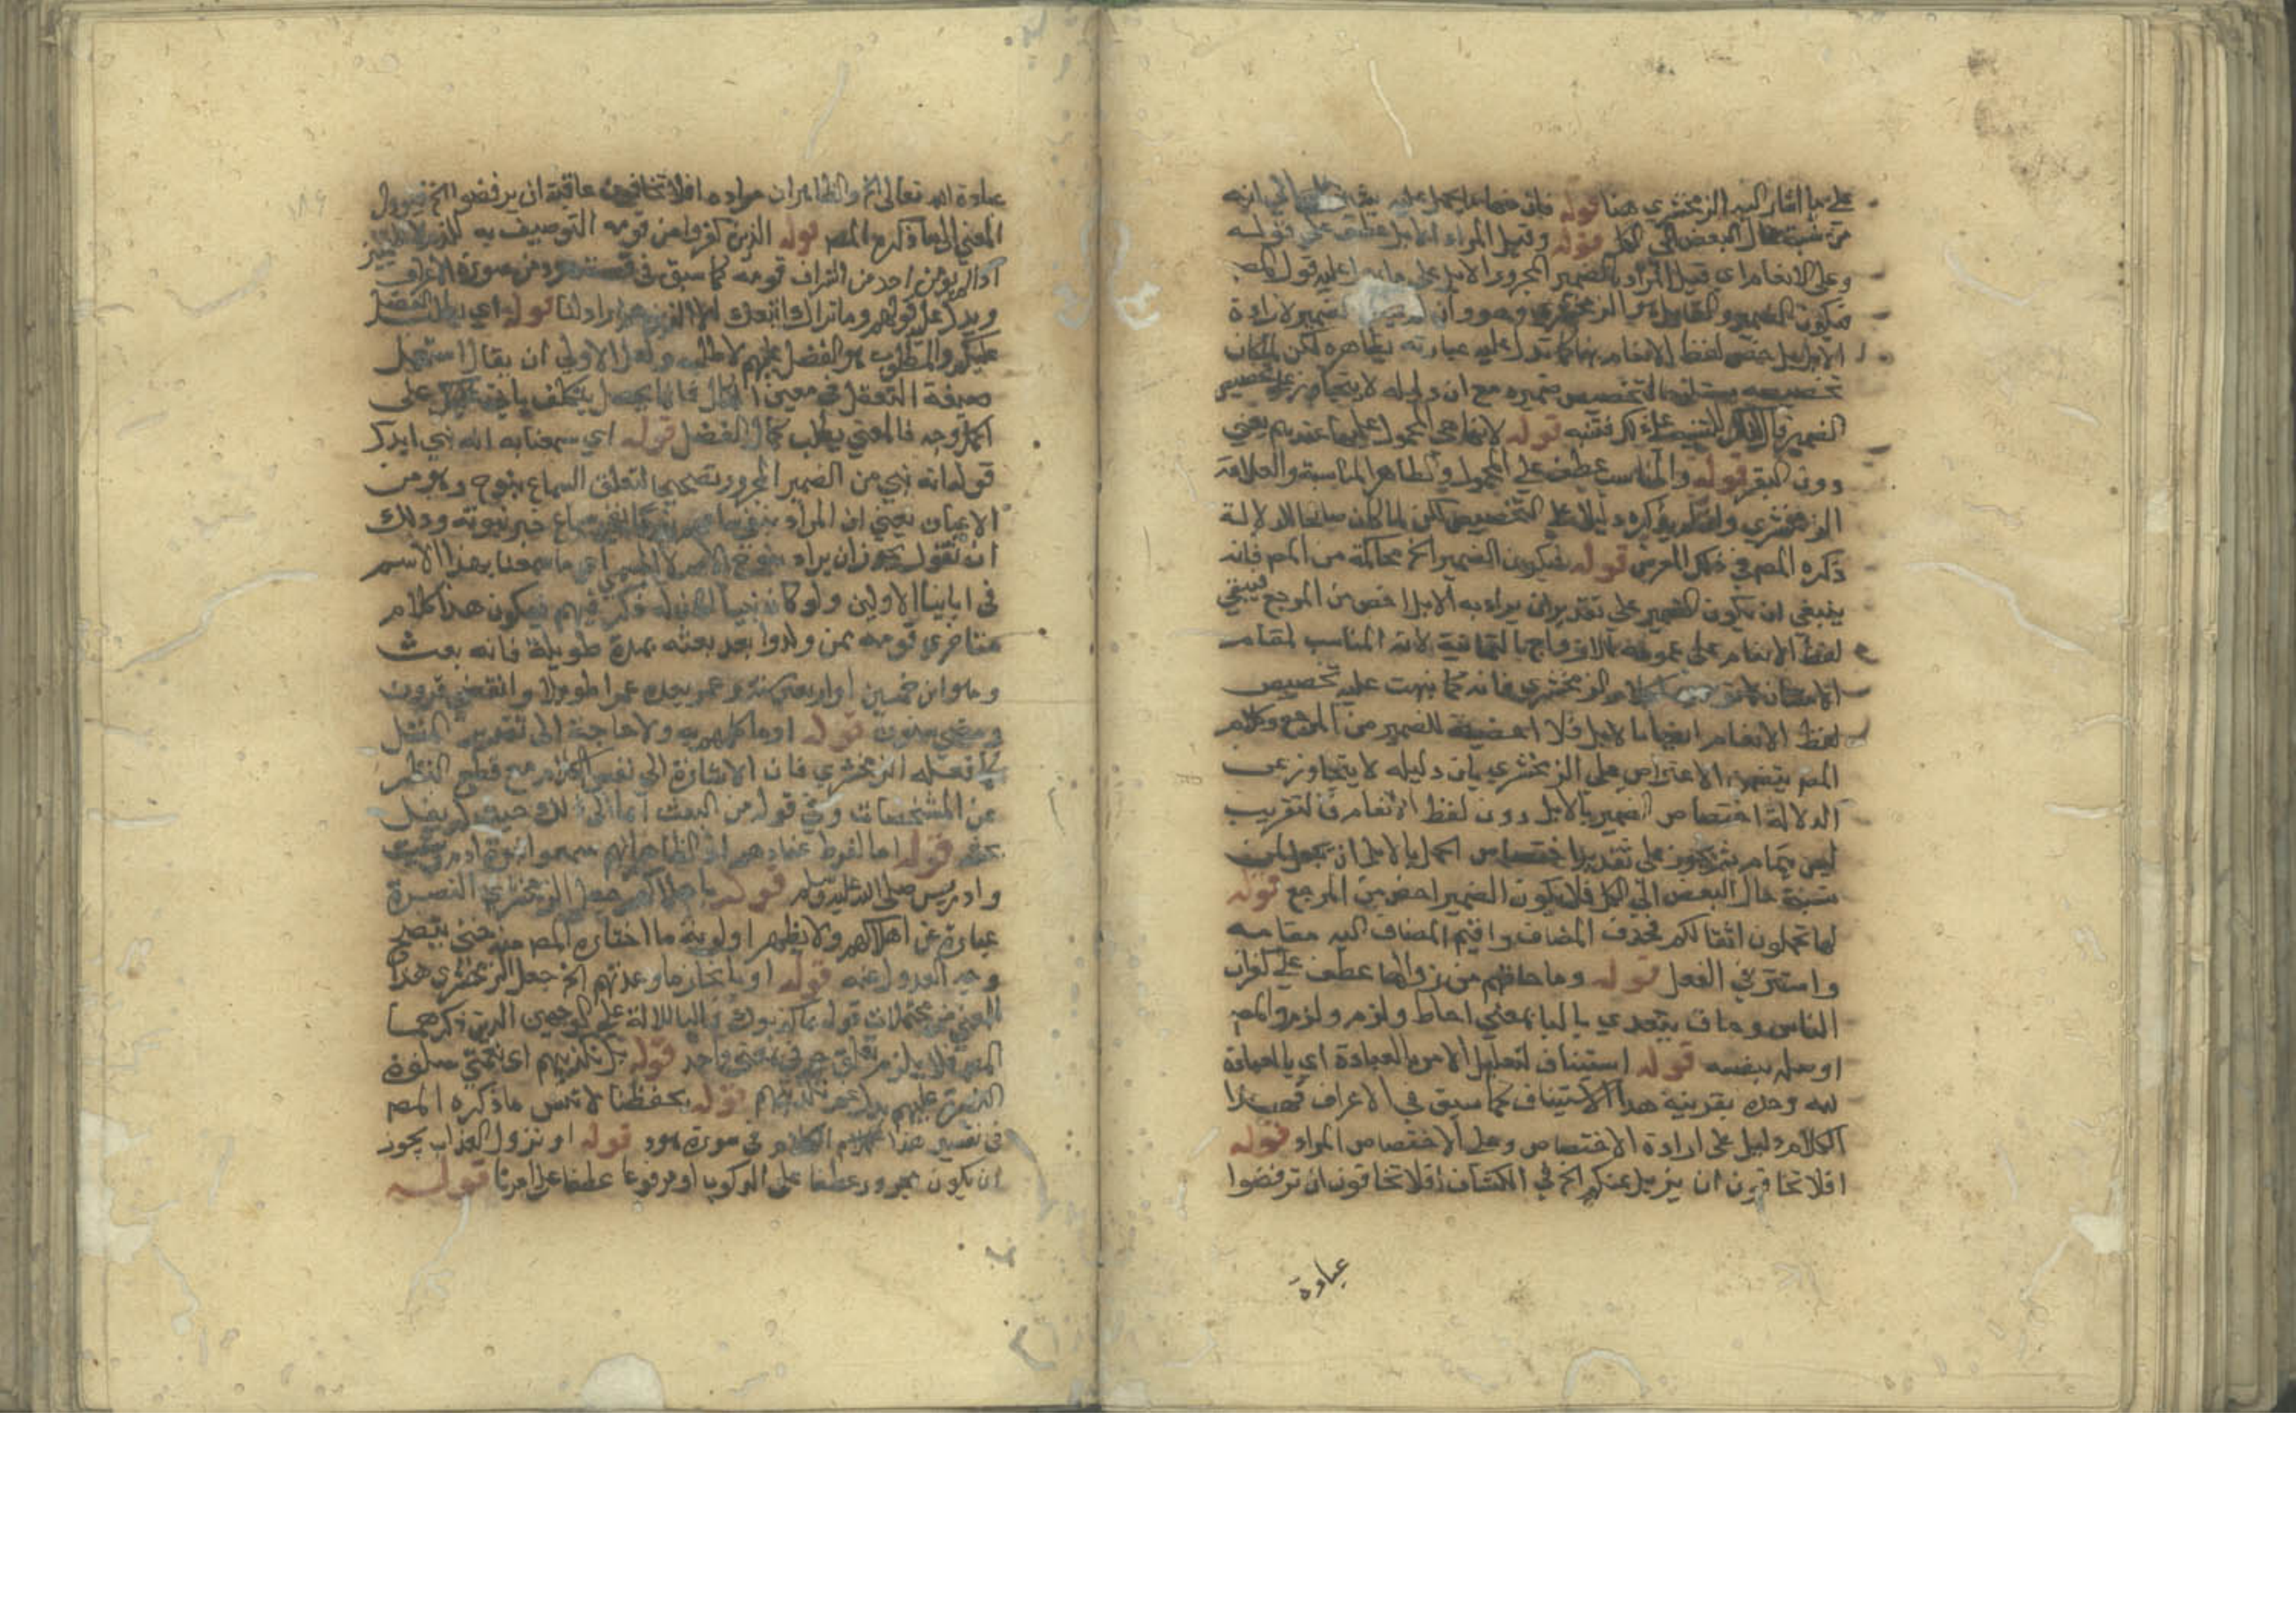 على ما اشار اليه الزمخشري هنا قوله فان منها ما يحمل عليه
من نسبة حال البعض الى الكل قوله وقيل المراد الابل عطف على قوله
وعلى الانعام اى قيل المراد بالضمير المجرور الابل على قول المص
فيكون الضمير الزمخشري وهو وان لارادة
الابل خص لفظ الانعام بها كما تدل عليه عبارته بظاهره لكن لما كان
تخصيصه يستلزم تخصيص ضميره مع ان دليله لا يتجاوز عن تخصيص
الضمير فتنبه قوله لانها هي المحمول عليها عندهم يعني
دون البقر قوله والمناسب عطف على المحمول والظاهر المناسبة والعلاقة
الزمخشري وان لم يذكره دليلا على التخصيص لكن لما كان صالحا للدلالة
ذكره المص في ذلك المعرض قوله فيكون الضمير الخ محاكمة من المص فانه
ينبغي ان يكون الضمير على تقدير ان يراد به الابل اخص من المرجع فيبقى
لفظ الانعام على عمومه للازواج الثمانية لانه المناسب لمقام
الامتنان الزمخشري فانه كما نبهت عليه تخصيص
لفظ الانعام ايضا بالابل فلا اخصية للضمير من المرجع وكلام
المص يتضمن الاعتراض على الزمخشري بان دليله لا يتجاوز عن
الدلالة اختصاص الضمير بالابل دون لفظ الانعام فالتقريب
ليس بتمام على تقدير اختصاص الحمل بالابل ان يجعل من
نسبة حال البعض الى الكل فلا يكون الضمير اخص من المرجع قوله
لها تحملون اثقالكم فحذف المضاف واقيم المضاف اليه مقامه
واستتر في الفعل قوله وما حاقهم من زوالها عطف على كفران
الناس وحاق يتعدى بالبا بمعنى احاط ولزم ولزم والمص
اوصله بنفسه قوله استيناف لتعليل الامر بالعبادة اي بالعبادة
لله وحده بقرينة هذا الاستيناف كما سبق في الاعراف فهذا
الكلام دليل على ارادة الاختصاص وعلى الاختصاص المراد قوله
افلا تخافون ان يزيل عنكم الخ في الكشاف افلا تخافون ان ترفضوا
عبادة
عبادة الله تعالى الخ والظاهر ان مراده افلا تخافون عاقبة ان يرفضوا الخ فيؤول
المعنى الى ما ذكره المص قوله الذين كفروا من قومه التوصيف به للذم لا للتمييز
اذ لم يؤمن احد من اشراف قومه كما سبق في قصته من سورة الاعراف
ويدل عليه قولهم وما نراك اتبعك الا الذين هم اراذلنا قوله اي يطلب الفضل
عليكم والمطلوب هو الفضل عليهم لا طلبه ولعل الاولى ان يقال استعمل
صيغة التفعل في معنى الكمال فان ما يحصل بتكلف ياتي على
اكمل وجه فالمعنى يطلب كمال الفضل قوله اي سمعنا به انه نبي ابدل
قوله انه نبي من الضمير المجرور تصحيحا لتعلق السماع بنوح وهو من
الاعيان يعني ان المراد بنفي سماع خبر نبوته ولك
ان تقول يجوز ان يراد بنوح الاسم لا المسمى اي ما سمعنا بهذا الاسم
في ابائنا الاولين ولو كان نبيا لكان له ذكر فيهم فيكون هذا كلام
متاخري قومه ممن ولدوا بعد بعثته بمدة طويلة فانه بعث
وهو ابن خمسين او اربعين سنة وعمر بعده عمرا طويلا وانقضى قرون
ومضى سنون قوله او ما كلمهم به ولا حاجة الى تقدير المثل
كما فعله الزمخشري فان الاشارة الى نفس الكلام مع قطع النظر
عن المشخصات وفي قوله من البعث
قوله اما لفرط عنادهم اذ الظاهر انهم سمعوا نبوة ادم وشيث
وادريس صلى الله عليه وسلم قوله باهلاكهم جعل الزمخشري النصرة
عبارة عن اهلاكهم ولا يظهر اولوية ما اختاره المص منه حتى يتضح
وجه العدول عنه قوله او بانجاز ما وعدتهم الخ جعل الزمخشري هذا
المعنى من محتملات قوله بما كذبون فالبا للالة على الوجهين الذين ذكرهما
المص فلا يلزم تعلق حرفي بمعنى واحد قوله بدل تكذيبهم اى نعمتي سلوة
النصرة عليهم بدل غم تكذيبهم قوله بحفظنا لا تنس ما ذكره المص
في تفسير هذا الكلام في سورة هود قوله او نزول العذاب يجوز
ان يكون مجرور عطفا على الركوب او مرفوعا عطفا على امرنا قوله